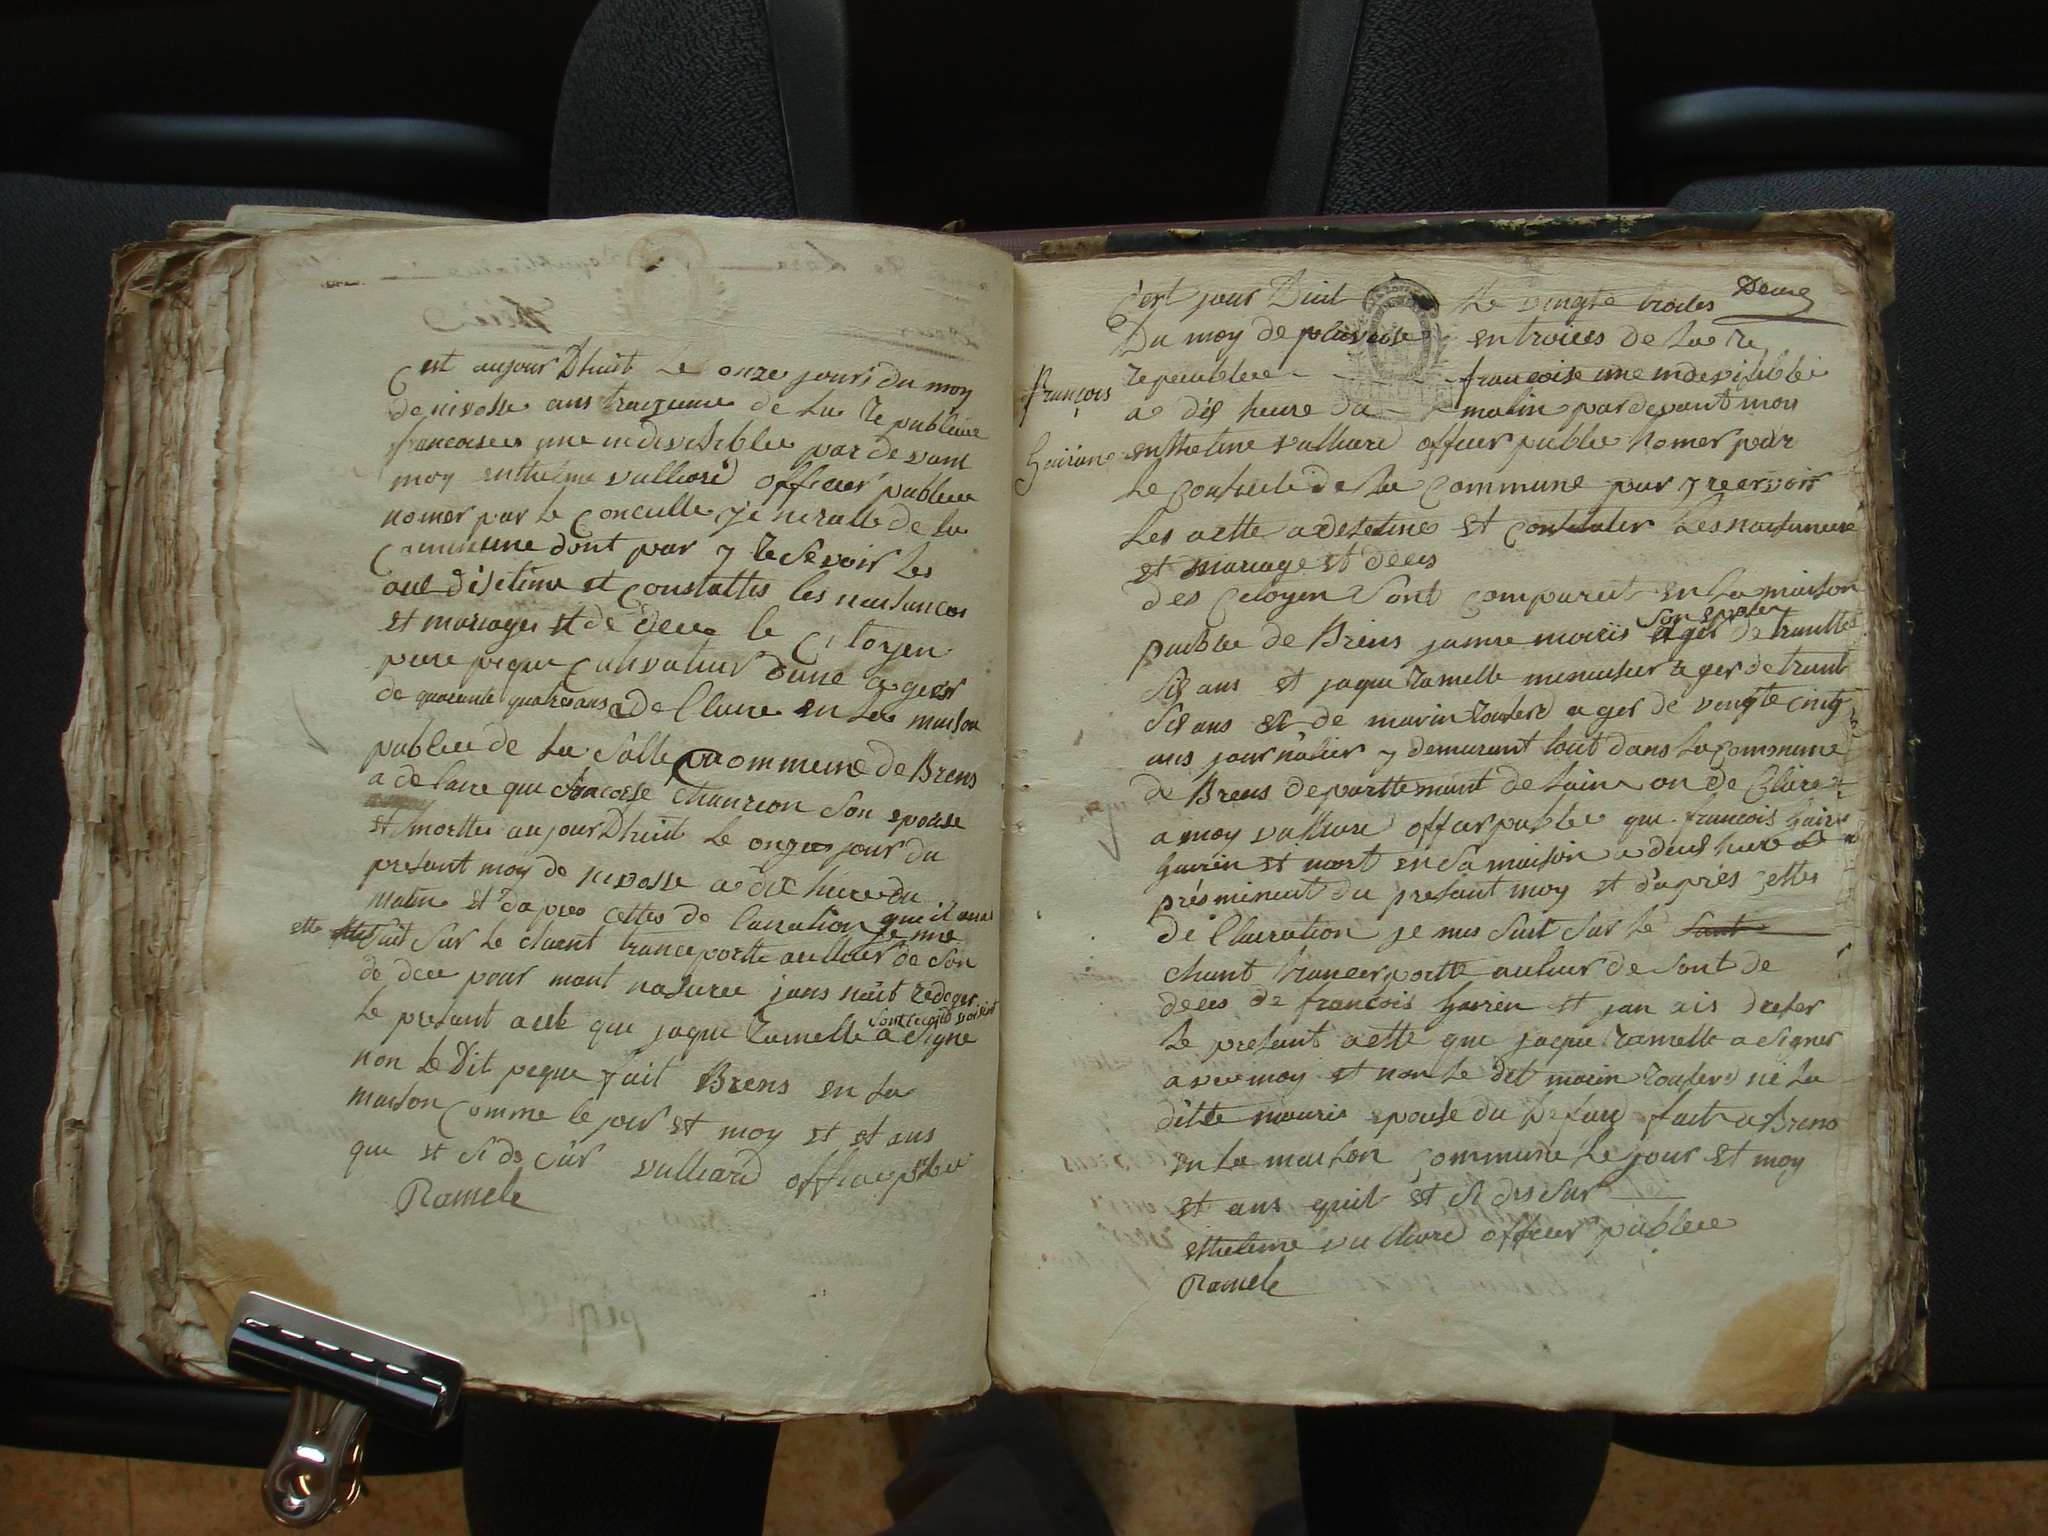 C est aujour Dhuit Le onze jours du moy
de nivosse ans troizieme de La Re publicue
francoisee une indivisiblee par de vant
moy enthelme vulliard officier publicu
nomer par le Conculle jeneralle de la
Commune dont par y Resevoir les
aus disetime et Constattes les naisances
et mariages et de dece le Citoyen
piere peque Cultivateur Dune ager
de quarante quatre ans a De Claire en La maison
publicu de La Salle Commune de Brens
a de Laire que francoise chanrion Son epouse
et mortte aujour Dhuit Le onzee jour du
presant moy de nivosse a dix heure du
matin et Dapres cettes de Claration que il a
ette fait Sur Le chant je me tranceportte au lieur de Son
de dece pour mont nasuree jans nait Redeger
Le presant acte que jaque Ramelle Sont segond voisint a Signe
non Le Dit peque fait Brens en La
maison Comme le jour et moy et et ans
que et Si de Sur vulliard officie pblic
Ramele
Deces
C'est jour Duit Le vingte trodes
Du moy de pluvaise entroiees de La Re
François
Republiee francoise une indevisiblee
a dis heure du matin par devant moy
Gairin
enthelme vulliard officer publee nomer par
Le Conseile de La Commune par y recevoir
Les actte a desetine et Constater Les naisanceee
et mariage et deces
des Cetoyen Sont Comparut en La maison
publee de Brens janne mariis Son epouse ager de trantte
Sis ans et jaque Ramelle menuisier ager de trant
Sis ans et de marin Rouserd ager de vengte cinq
ans journalier y demurant tout dans La Commune
de Brens departtemant de Lain on de Claire
a moy vulliard officer publee que francois Gairin
Gairin et mort en Sa maison a deus heure
pres minuit du presant moy et d'apres cettes
de Claration je mes Suit Sur Le Sant
chant trancerportte aulieur de Sont de
deces de francois Gairin et jan ais dreser
Le presant actte que jaque Ramelle a Signer
avec moy et non Le dit marin Rouserd ne La
ditte mauris epouse du Defun fait a Brens
en La maison Commune Le jour et moy
et ans quil et Si des Sur
enthelme vulliard officer publicu
Ramele